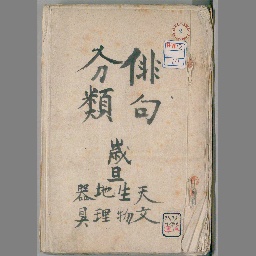 俳句
分類
歳旦
天文
生物
地理
器具